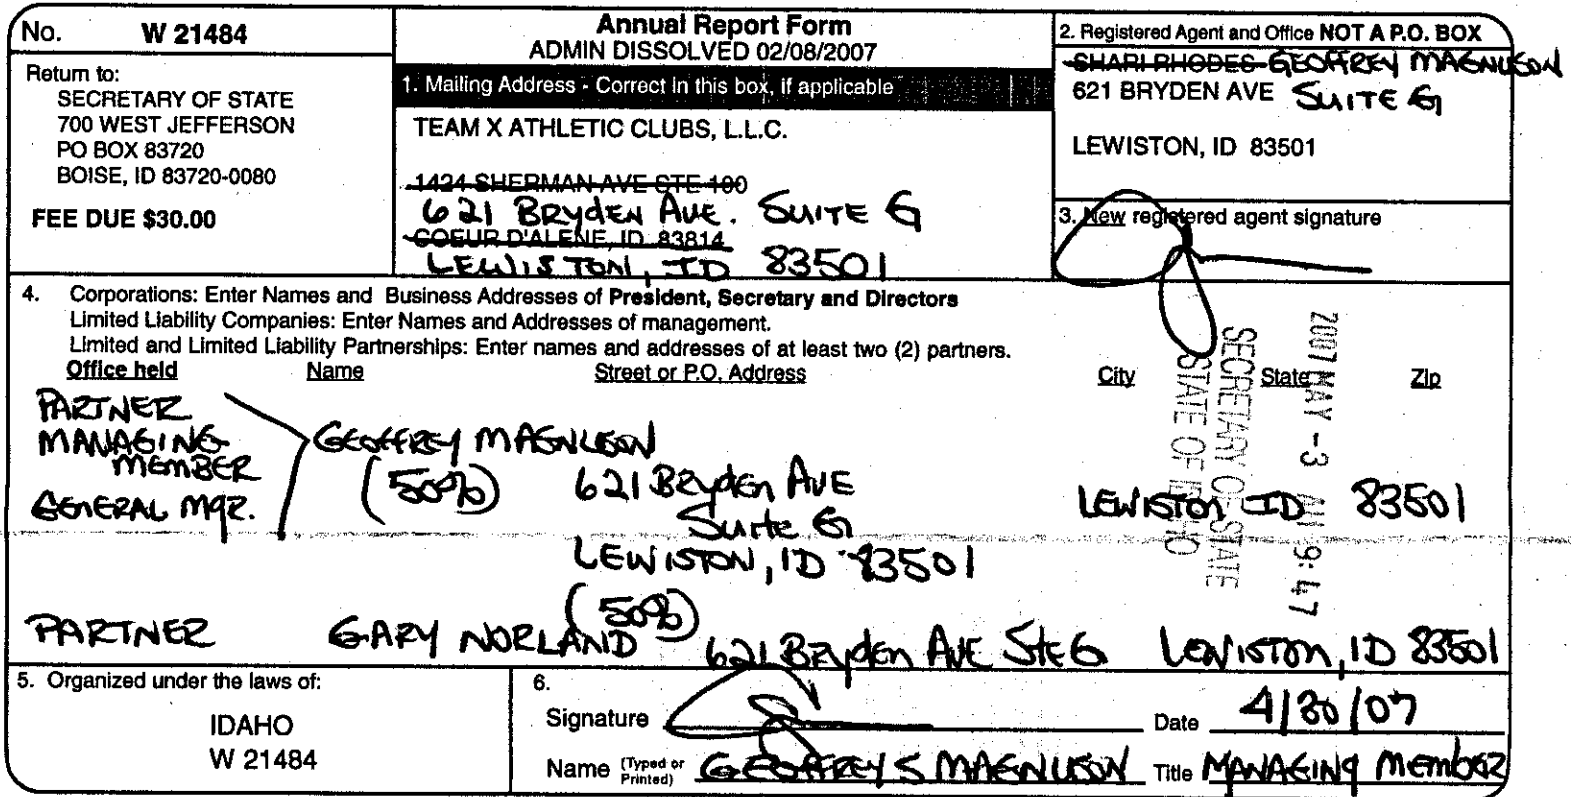 No. W 21484
Return to:
SECRETARY OF STATE
700 WEST JEFFERSON
PO BOX 83720
BOISE, ID 83720-0080
FEE DUE $30.00
Annual Report Form
ADMIN DISSOLVED 02/08/2007
1. Mailing Address - Correct in this box, if applicable
TEAM X ATHLETIC CLUBS, L.L.C.
1424 SHERMAN AVE STE 100
621 BRYDEN AVE. SUITE G
COEUR D'ALENE, ID 83814
LEWISTON, ID 83501
2. Registered Agent and Office NOT A P.O. BOX
SHARI RHODES GEOFFREY MAGNUSON
621 BRYDEN AVE SUITE G
LEWISTON, ID 83501
3. New registered agent signature
4. Corporations: Enter Names and Business Addresses of President, Secretary and Directors
Limited Liability Companies: Enter Names and Addresses of management.
Limited and Limited Liability Partnerships: Enter names and addresses of at least two (2) partners.
Office held Name Street or P.O. Address City State Zip
PARTNER
MANAGING MEMBER
GENERAL MGR.
GEOFFREY MAGNUSON
(50%)
621 BRYDEN AVE
Suite G
LEWISTON, ID 83501
LEWISTON ID 83501
2007 MAY -3 AM 9:47
SECRETARY OF STATE
STATE OF IDAHO
(50%)
PARTNER GARY NORLAND 621 BRYDEN AVE Ste G LEWISTON, ID 83501
5. Organized under the laws of:
IDAHO
W 21484
6.
Signature
Date 4/30/07
Name (Typed or Printed) GEOFFREY S MAGNUSON Title MANAGING MEMBER